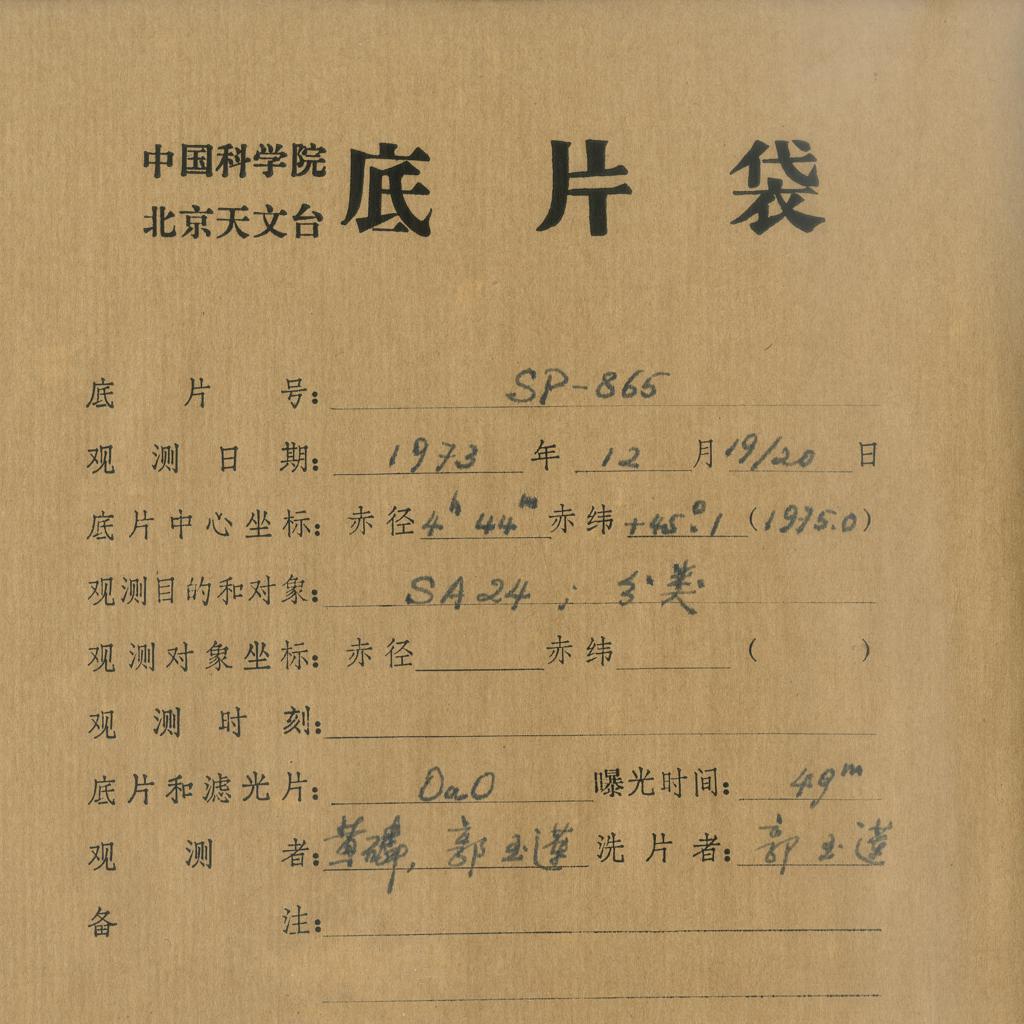 中国科学院
北京天文台
底片袋
底片号: SP-865
观测日期: 1973年12月19/20日
底片中心坐标: 赤径 4h 44m 赤纬 +45°.1 (1975.0)
观测目的和对象: SA24 ; 分类
观测对象坐标: 赤径 赤纬 ( )
观测时刻:
底片和滤光片: OaO 曝光时间: 49m
观测者: 郭玉莲 洗片者: 郭玉莲
备注: